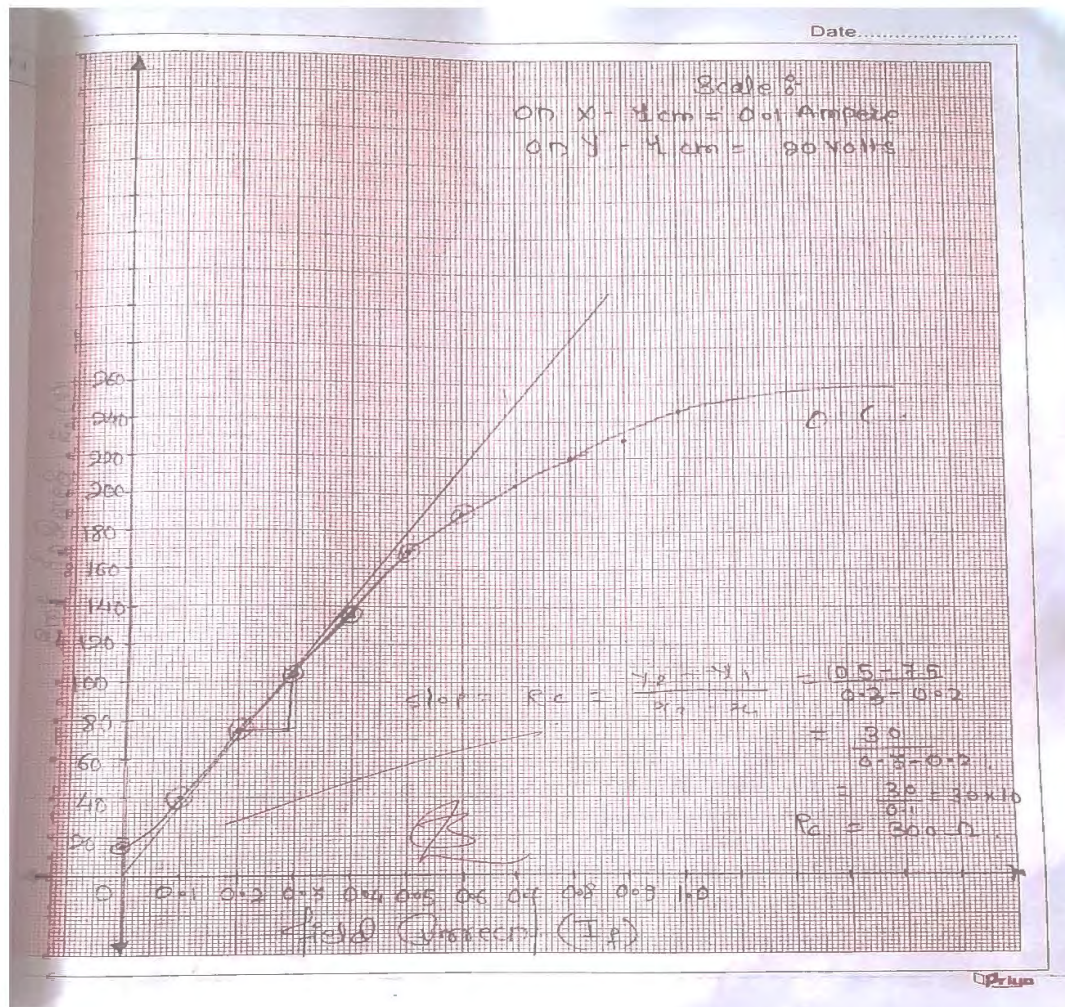 Date
Scale :-
on X - 1 cm = 0.1 Ampere
on y - 1 cm = 20 volts
260
240
220
200
180
160
140
120
100
80
60
40
20
O C
slope = Rc = y2 - y1 / x2 - x1 = 105 - 75 / 0.3 - 0.2
= 30 / 0.3 - 0.2
= 30 / 0.1 = 30 x 10
Rc = 300 Ω
0 0.1 0.2 0.3 0.4 0.5 0.6 0.7 0.8 0.9 1.0
field (If)
Priya